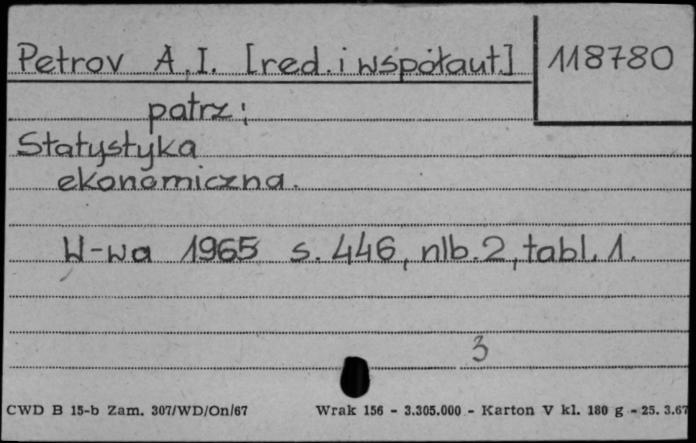 Petrov A.I. [red. i współaut.]
118780
patrz:
Statystyka
ekonomiczna.
W-wa 1965 s. 446, nlb. 2, tabl. 1.
3
CWD B 15-b Zam. 307/WD/On/67 Wrak 156 - 3.305.000 - Karton V kl. 180 g - 25. 3.67